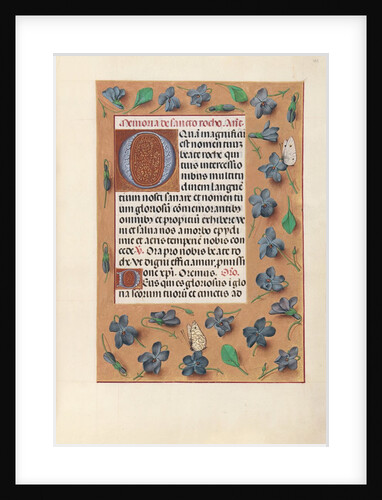 Memoria de sancto rocho. Añe.
Quā magnificū
est nomen tuum
beate roche qui
tuis intercessio
nibus multitu
dinem languē
tium nosti sanare et nomen tu
um gloriosū cōmemorantibus
omnibus te propitiū exhibere ve
ni et salua nos a morbo epydi
mie et aeris temperiē nobis con
cede. V. Ora pro nobis beate ro
che. Vt digni efficiamur promissi
one xpi. Oremus. Oro.
Deus qui es gloriosus i glo
ria sctorum tuorū et cunctis ad